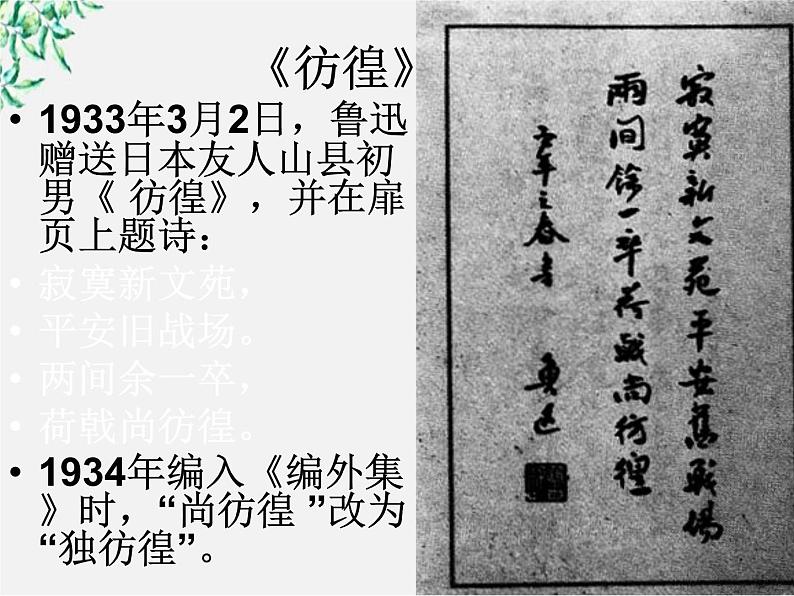 《彷徨》
• 1933年3月2日，鲁迅
赠送日本友人山县初
男《 彷徨》，并在扉
页上题诗：
• 寂寞新文苑，
• 平安旧战场。
• 两间余一卒，
• 荷戟尚彷徨。
• 1934年编入《编外集
》时，“尚彷徨 ”改为
“独彷徨”。
寂寞新文苑平安舊戰場
兩间餘一卒荷戟尚彷徨
酉年之春書 魯迅